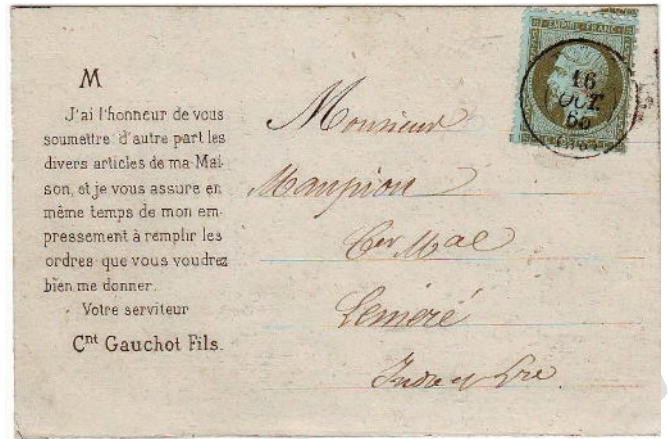 M
J'ai l'honneur de vous
soumettre d'autre part les
divers articles de ma Mai-
son, et je vous assure en
même temps de mon em-
pressement à remplir les
ordres que vous voudrez
bien me donner.
Votre serviteur
Cnt Gauchot Fils.
EMPIRE FRANC
16
OCT
66
Monsieur
Maupion
Cer Mal
Lemeré
Indre et Lre